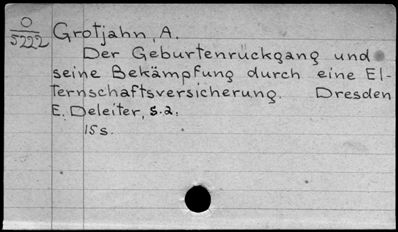 O
5222
Grotjahn, A.
Der Geburtenrückgang und
seine Bekämpfung durch eine El-
ternschaftsversicherung. Dresden
E. Deleiter, s.a.
15 s.